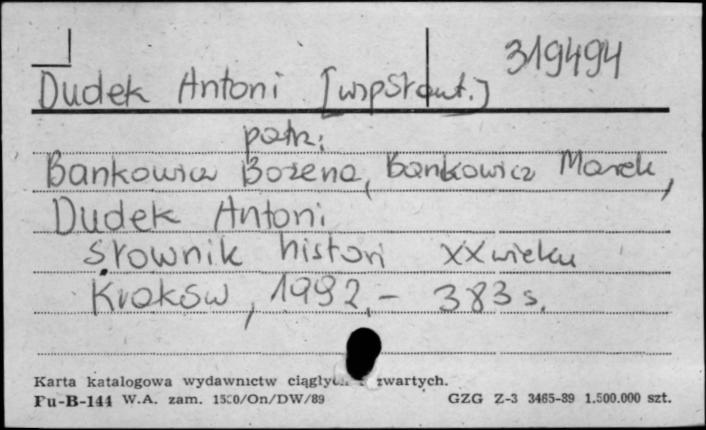 319494
Dudek Antoni [współaut.]
patrz:
Bankowicz Bożena, Bankowicz Marek,
Dudek Antoni
słownik histori XX wieku
Kraków, 1992.- 383 s.
Karta katalogowa wydawnictw ciągłych zwartych.
Pu-B-144 W.A. zam. 1500/On/DW/89 GZG Z-3 3465-89 1.500.000 szt.